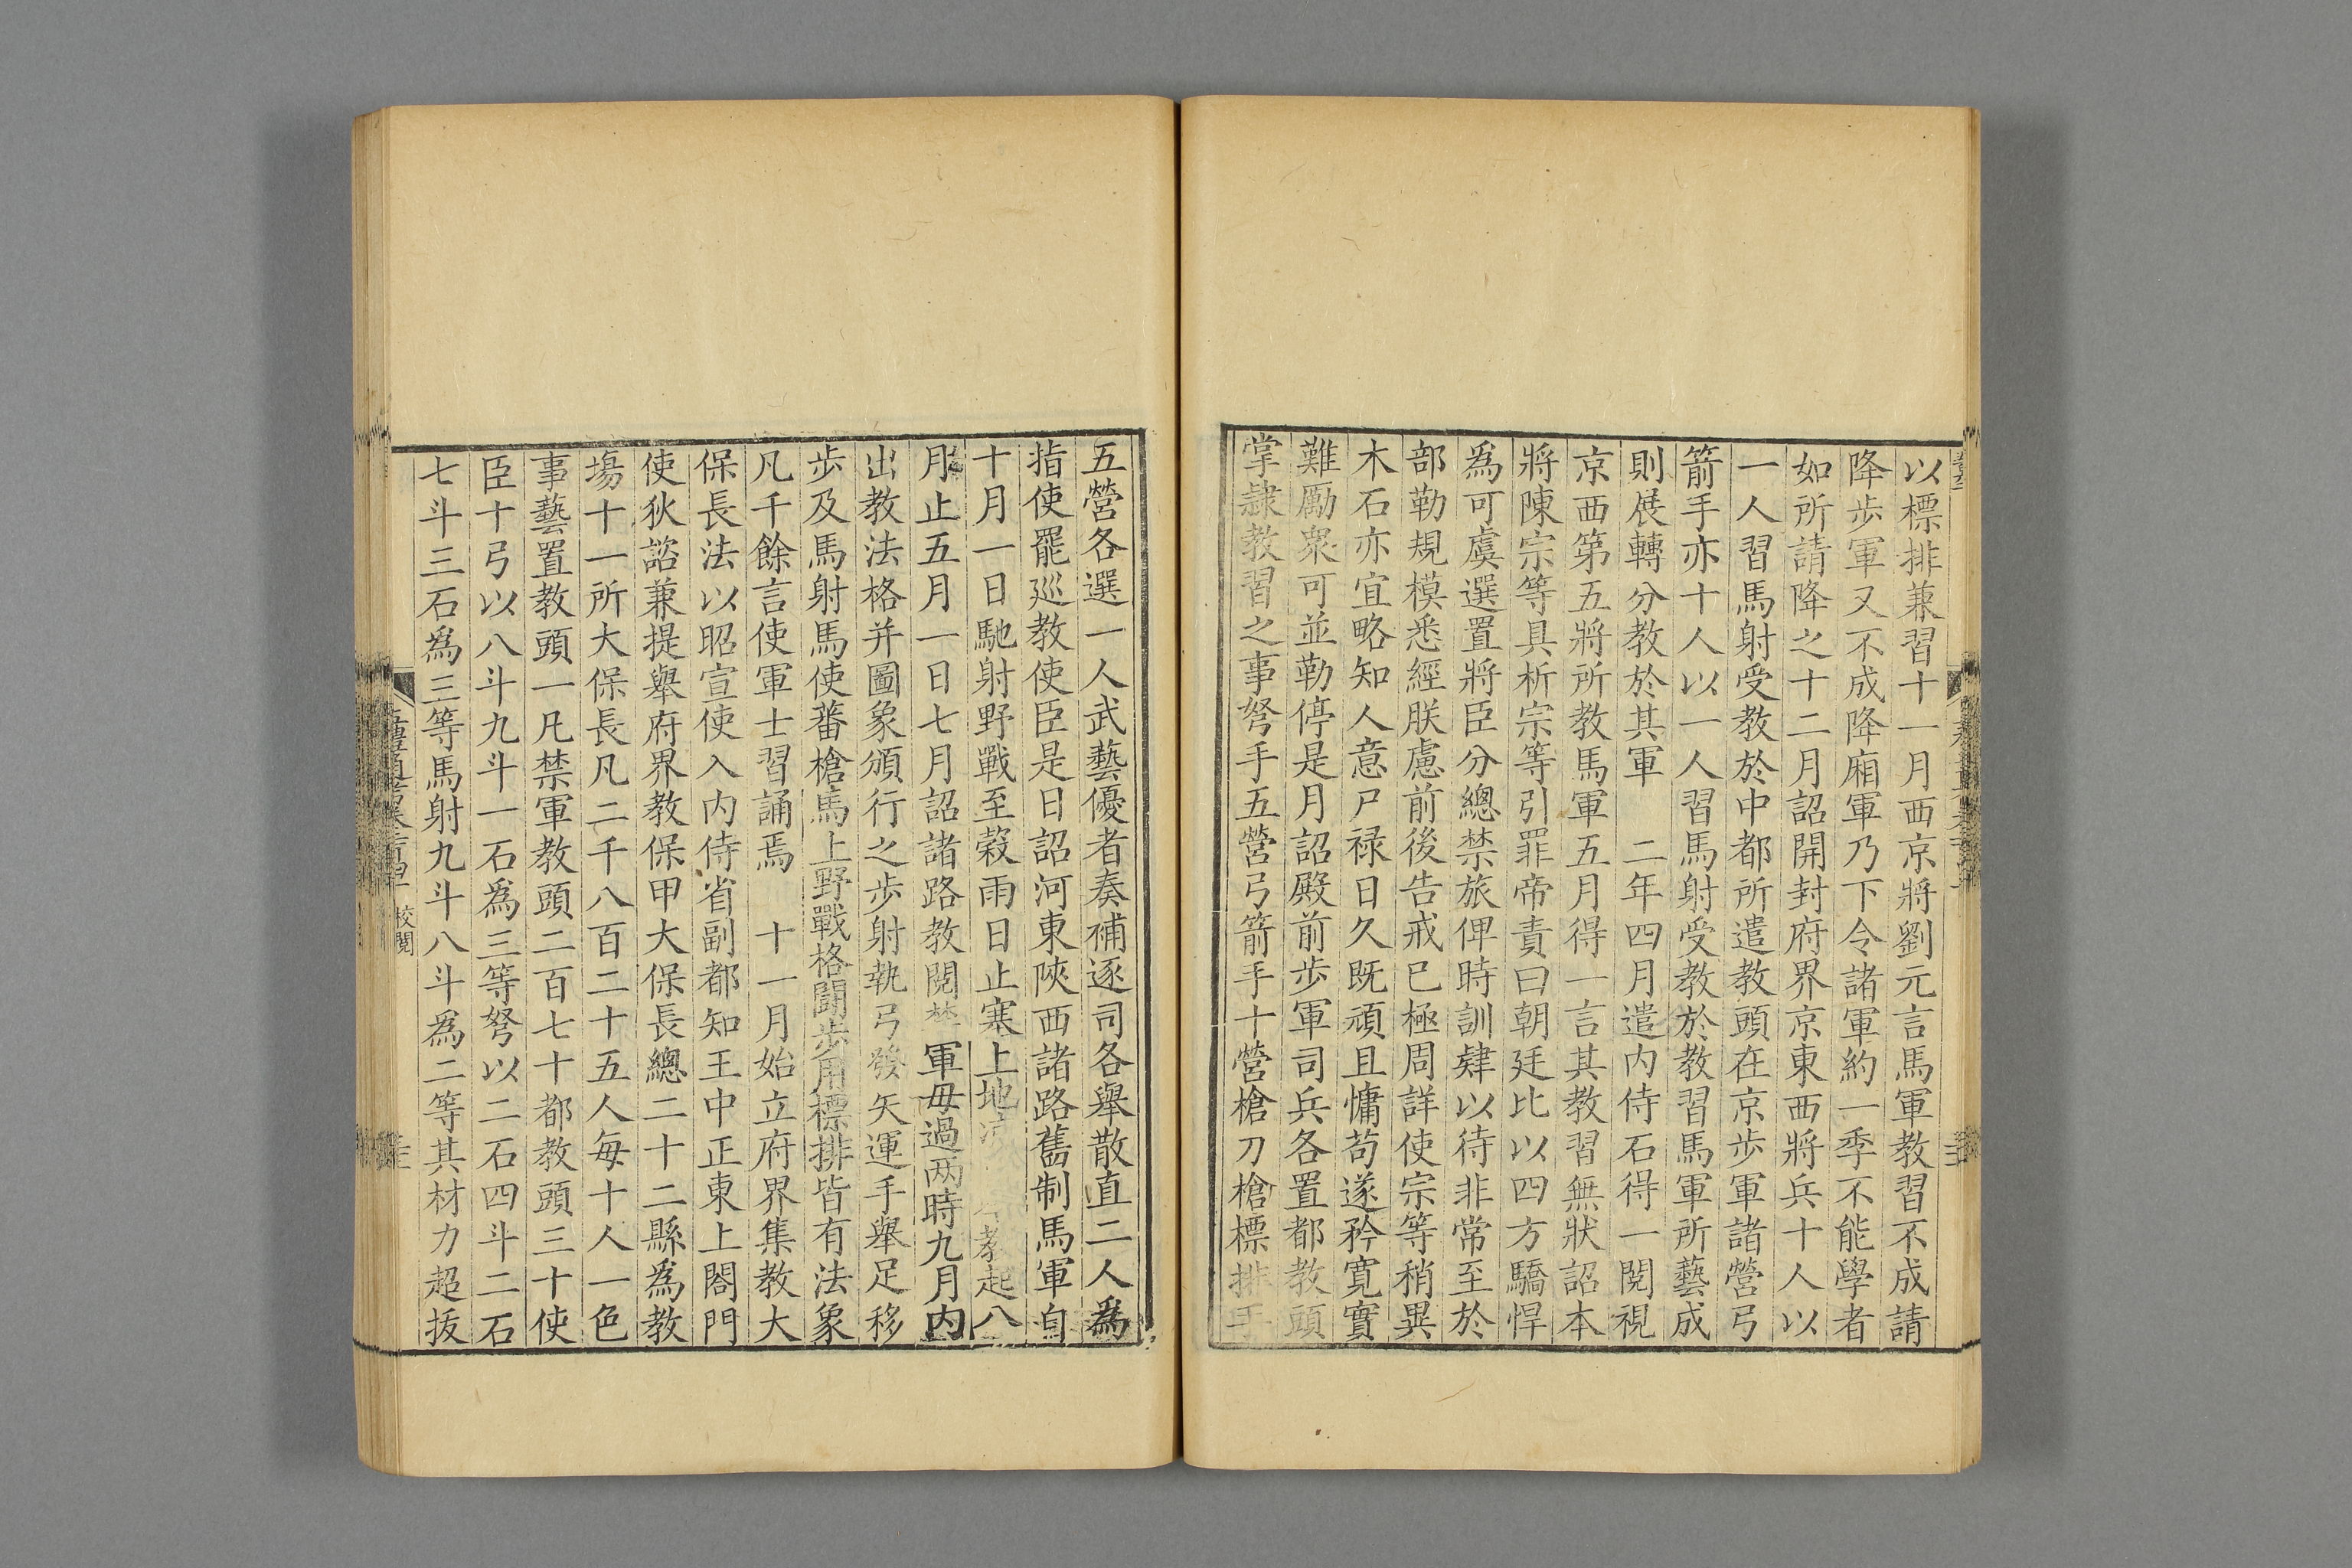 以標排兼習十一月西京將劉元言馬軍教習不成請
降步軍又不成降廂軍乃下令諸軍約一季不能學者
如所請降之十二月詔開封府界京東西將兵十人以
一人習馬射受教於中都所遣教頭在京步軍諸營弓
箭手亦十人以一人習馬射受教於教習馬軍所藝成
則展轉分教於其軍 二年四月遣内侍石得一閱視
京西第五將所教馬軍五月得一言其教習無狀詔本
將陳宗等具析宗等引罪帝責曰朝廷比以四方驕悍
爲可虞選置將臣分總禁旅俾時訓肄以待非常至於
部勒規模悉經朕慮前後告戒已極周詳使宗等稍異
木石亦宜略知人意尸禄日久既頑且慵苟遂矜寛實
難勵衆可並勒停是月詔殿前步軍司兵各置都教頭
掌隸教習之事弩手五營弓箭手十營槍刀槍標排手
五營各選一人武藝優者奏補逐司各舉散直二人爲
指使罷巡教使臣是日詔河東陝西諸路舊制馬軍自
十月一日馳射野戰至穀雨日止塞上地教起八
月止五月一日七月詔諸路教閱禁軍毋過两時九月内
出教法格并圖象頒行之步射執弓發矢運手舉足移
步及馬射馬使蕃槍馬上野戰格鬭步用標排皆有法象
凡千餘言使軍士習誦焉 十一月始立府界集教大
保長法以昭宣使入内侍省副都知王中正東上閤門
使狄諮兼提舉府界教保甲大保長總二十二縣爲教
塲十一所大保長凡二千八百二十五人毎十人一色
事藝置教頭一凡禁軍教頭二百七十都教頭三十使
臣十弓以八斗九斗一石爲三等弩以二石四斗二石
七斗三石爲三等馬射九斗八斗爲二等其材力超拔
校閱